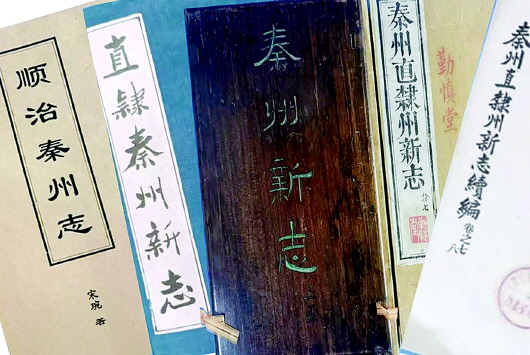 顺治秦州志
宋琬 著
直隸秦州新志
秦州新志
秦州直隸州新志
拾七
勤慎堂
秦州直隸州新志續編
卷之七
八